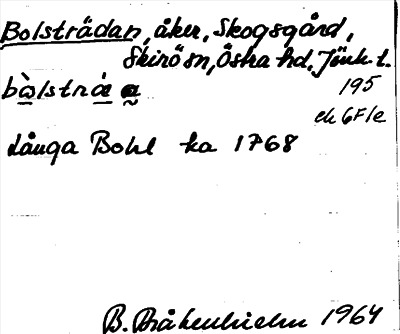 Bolsträdan, åker, Skogsgård,
Skirö sn, Östra hd, Jönk. l.
195
ek 6F1e
Långa Bohl ka 1768
B. Bråkenhielm 1964